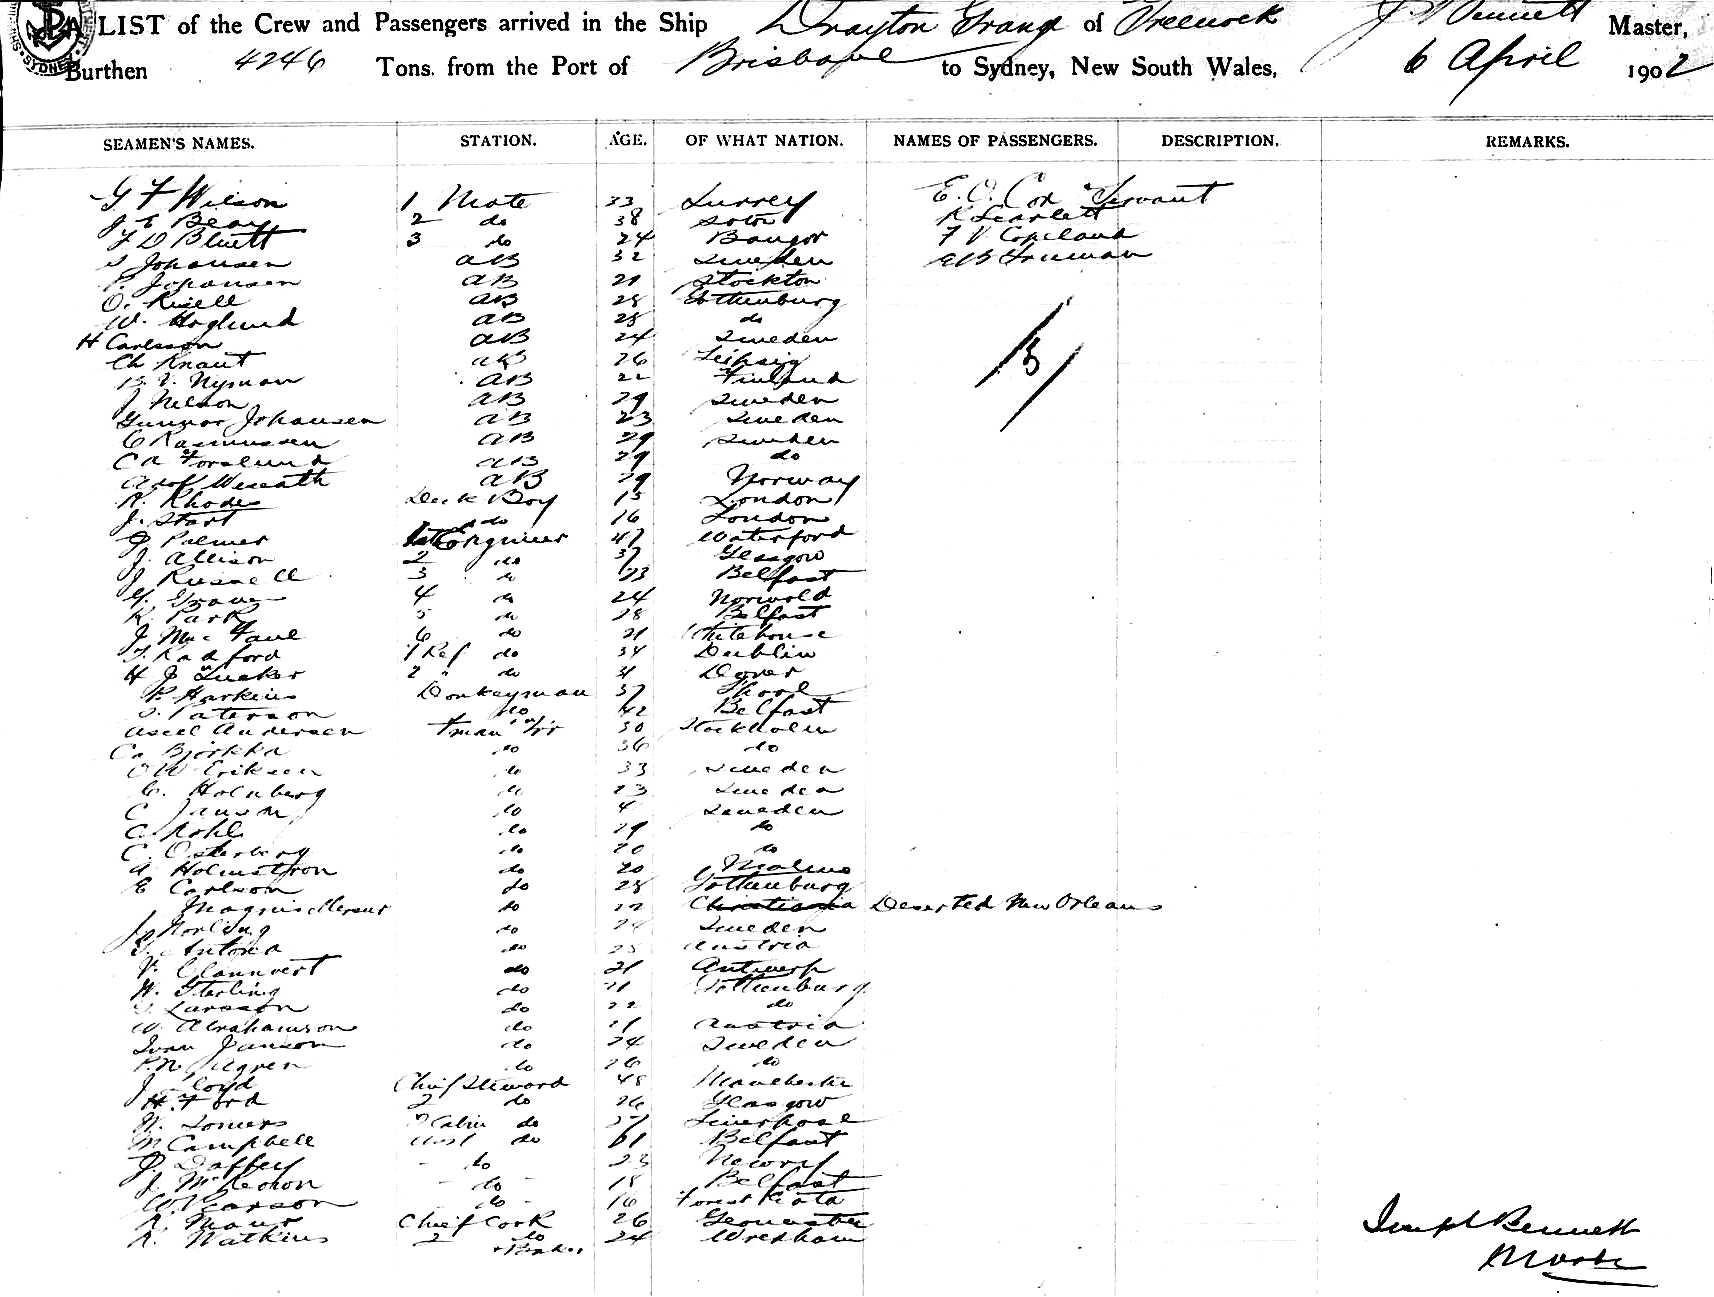 A LIST of the Crew and Passengers arrived in the Ship Drayton Grange of Greenock J Bennett Master,
Burthen 4246 Tons. from the Port of Brisbane to Sydney, New South Wales, 6 April 1902
SEAMEN'S NAMES. STATION. AGE. OF WHAT NATION. NAMES OF PASSENGERS. DESCRIPTION. REMARKS.
G F Wilson 1 Mate 33 Surrey E. O. Cox Servant
J E Bean 2 do 38 Soton R Scarlett
F D Bluett 3 do 24 Bangor F V Copeland
S Johansen AB 32 Sweden Freeman
P. Johansen AB 21 Stockton
O. Risell AB 28 Gothenburg
W. Hoglund AB 28 do
H Carlsson AB 24 Sweden
Ch Knaut AB 26 Leipsig
B. V. Nyman AB 22 Finland
J Nelson AB 29 Sweden
Gunnar Johansen AB 23 Sweden
C Rasmussen AB 29 Sweden
C A Forslund AB 29 do
Adolf AB 29 Norway
R. Rhodes Deck Boy 15 London
J. Start do 16 London
J Palmer 1st Engineer 47 Waterford
J. Allison 2 do 37 Glasgow
J Russell 3 do 23 Belfast
4 do 24 Norwold
R. Park 5 do 28 Belfast
J Mac Faul 6 do 21 Whitehouse
T. Radford 1 Ref do 34 Dublin
H J Tucker 2 " do Dover
P. Harkins Donkeyman 37
S. Paterson do 42 Belfast
Axell Andersen Fman 30 Stockholm
do 36 do
O W Eriksen do 33 Sweden
C. Holmberg do 23 Sweden
C do Sweden
C. Kohl do 29 do
C. Osterberg do 20 do
A Holmstrom do 20 Malmo
E Carlson do 28 Gothenburg
Magnus do 22 Christiania Deserted New Orleans
J Norling do 24 Sweden
Antona do 25 Austria
V. do 21 Antwerp
W. Sterling do 21 Gothenburg
Larsson do 22 do
W. Abrahamson do 21 Austria
Ivan Janson do 24 Sweden
Agren do 26 do
J. Lloyd Chief Steward 48 Manchester
H. Ford 2 do 26 Glasgow
W. Somers Cabin do 37 Liverpool
M Campbell Asst do 61 Belfast
P. Daffey do 23 Newry
J. McKeown do 18 Belfast
W. Carson do 16 Forest Gate
Chief Cook 26 Gloucester
R. Watkins 2 do 24 Wrexham
+ Baker
Joseph Bennett
Master